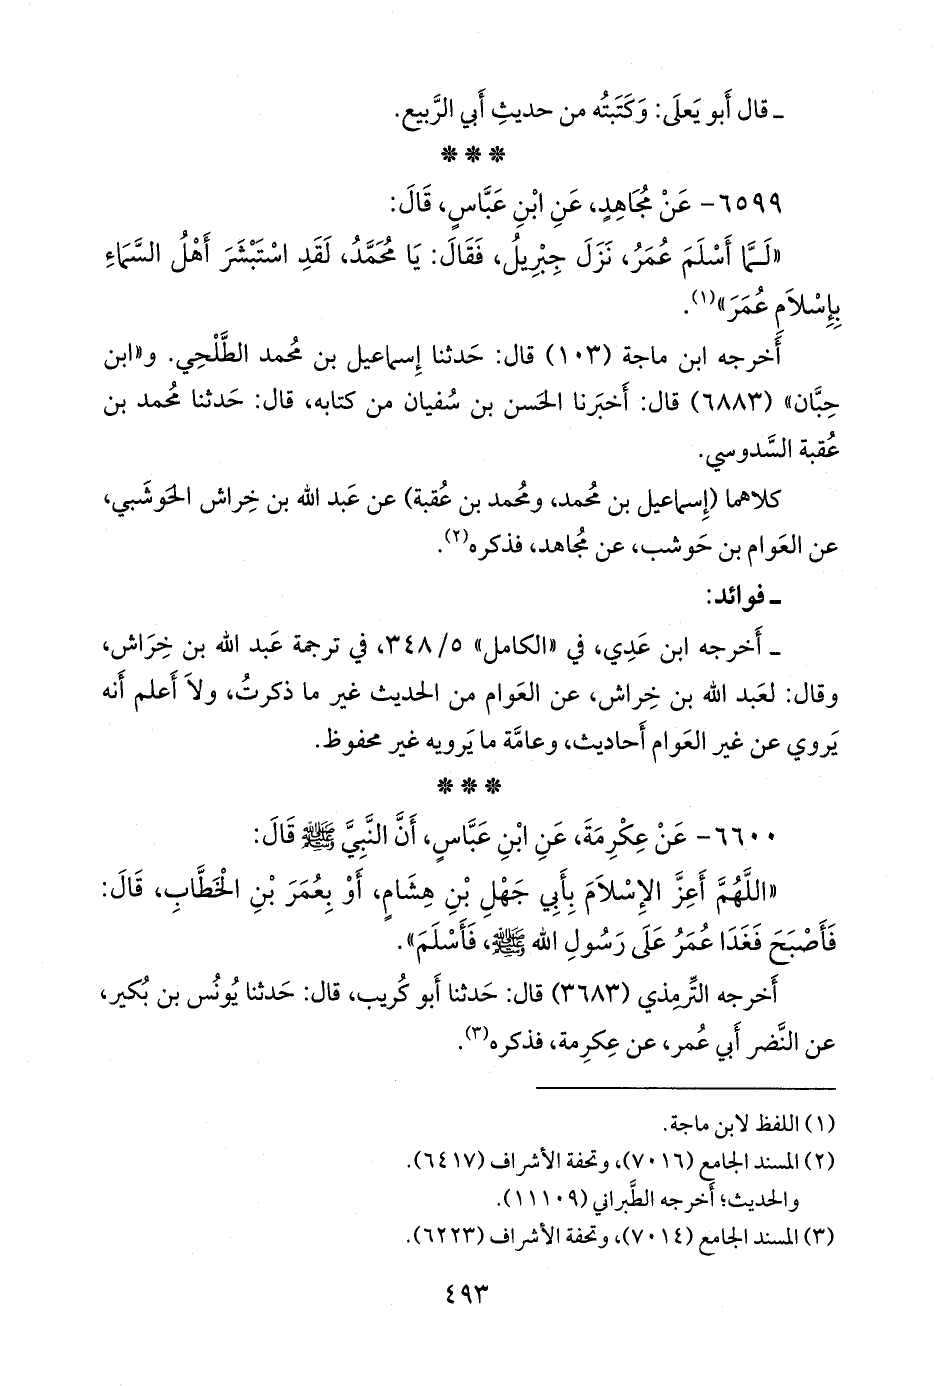 ـ قال أَبو يَعلَى: وَكَتَبتُه من حديثِ أَبي الرَّبيع.
* * *
٦٥٩٩- عَنْ مُجَاهِدٍ، عَنِ ابْنِ عَبَّاسٍ، قَالَ:
«لَـمَّا أَسْلَمَ عُمَرُ، نَزَلَ جِبْرِيلُ، فَقَالَ: يَا مُحَمَّدُ، لَقَدِ اسْتَبْشَرَ أَهْلُ السَّمَاءِ
بِإِسْلاَمِ عُمَرَ»(١).
أَخرجه ابن ماجة (١٠٣) قال: حَدثنا إِسماعيل بن مُحمد الطَّلْحِي. و«ابن
حِبَّان» (٦٨٨٣) قال: أَخبَرنا الحَسن بن سُفيان من كتابه، قال: حَدثنا مُحمد بن
عُقبة السَّدوسي.
كلاهما (إِسماعيل بن مُحمد، ومُحمد بن عُقبة) عن عَبد الله بن خِراش الحَوشَبي،
عن العَوام بن حَوشب، عن مُجاهد، فذكره(٢).
ـ فوائد:
ـ أَخرجه ابن عَدِي، في «الكامل» ٥/ ٣٤٨، في ترجمة عَبد الله بن خِرَاش،
وقال: لعَبد الله بن خِراش، عن العَوام من الحَديث غير ما ذكرتُ، ولاَ أَعلم أَنه
يَروي عن غير العَوام أَحاديث، وعامَّة ما يَرويه غير محفوظ.
* * *
٦٦٠٠- عَنْ عِكْرِمَةَ، عَنِ ابْنِ عَبَّاسٍ، أَنَّ النَّبِيَّ ﷺ قَالَ:
«اللَّهُمَّ أَعِزَّ الإِسْلاَمَ بِأَبِي جَهْلِ بْنِ هِشَامٍ، أَوْ بِعُمَرَ بْنِ الْخَطَّابِ، قَالَ:
فَأَصْبَحَ فَغَدَا عُمَرُ عَلَى رَسُولِ الله ﷺ، فَأَسْلَمَ».
أَخرجه التِّرمِذي (٣٦٨٣) قال: حَدثنا أَبو كُريب، قال: حَدثنا يُونُس بن بُكير،
عن النَّضر أَبي عُمر، عن عِكرِمة، فذكره(٣).
(١) اللفظ لابن ماجة.
(٢) المسند الجامع (٧٠١٦)، وتحفة الأشراف (٦٤١٧).
والحديث؛ أَخرجه الطَّبراني (١١١٠٩).
(٣) المسند الجامع (٧٠١٤)، وتحفة الأشراف (٦٢٢٣).
٤٩٣